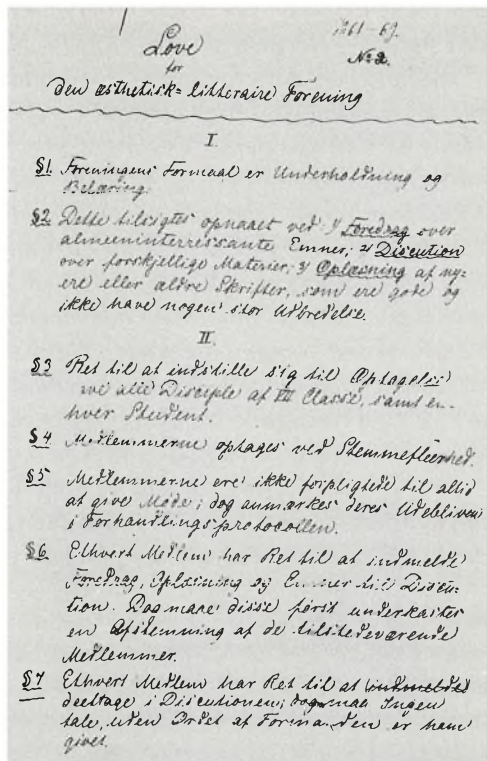 1861-69.
Love
No 2.
for
Den æsthetisk-litteraire Forening
I.
§1. Foreningens Formaal er Underholdning og
Belæring.
§2. Dette tilsigtes opnaaet ved: 1) Foredrag over
almeeninterressante Emner; 2) Discution
over forskjellige Materier; 3) Oplæsning af ny-
ere eller ældre Skrifter, som ere gode og
ikke have nogen stor Udbredelse.
II.
§3 Ret til at indstille sig til Optagelse
alle Disciple af VII Classe, samt en-
hver Student.
§4 Medlemmerne optages ved Stemmefleerhed.
§5 Medlemmerne ere ikke forpligtede til altid
at give Møde; dog anmærkes deres Udebliven
i Forhandlingsprotocollen.
§6 Ethvert Medlem har Ret til at indmelde
Foredrag, Oplæsning og Emner til Discu-
tion. Dog maae disse først underkastes
en Afstemning af de tilstedeværende
Medlemmer.
§7 Ethvert Medlem har Ret til at indmeldes
deeltage i Discutionen; dog maa Ingen
tale, uden Ordet af Formanden er ham
givet.